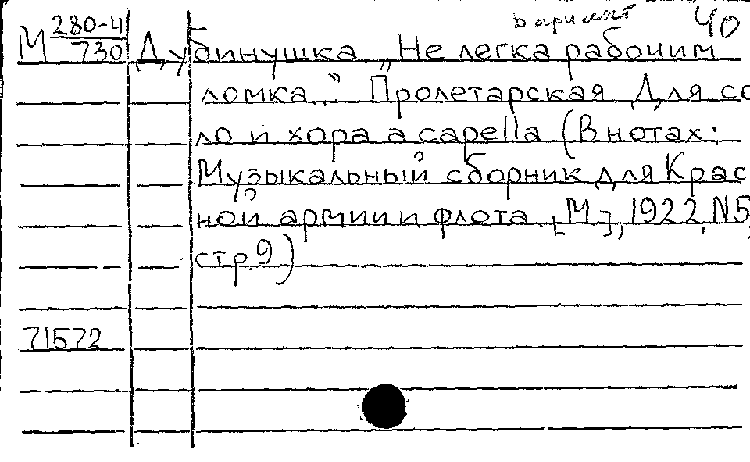 вариант 40
М 280-4/730 Дубинушка „Не легка рабочим
ломка..." Пролетарская Для со
ло и хора a capella (В нотах:
Музыкальный сборник для Крас
ной армии и флота [М], 1922, N5,
стр 9)
71572